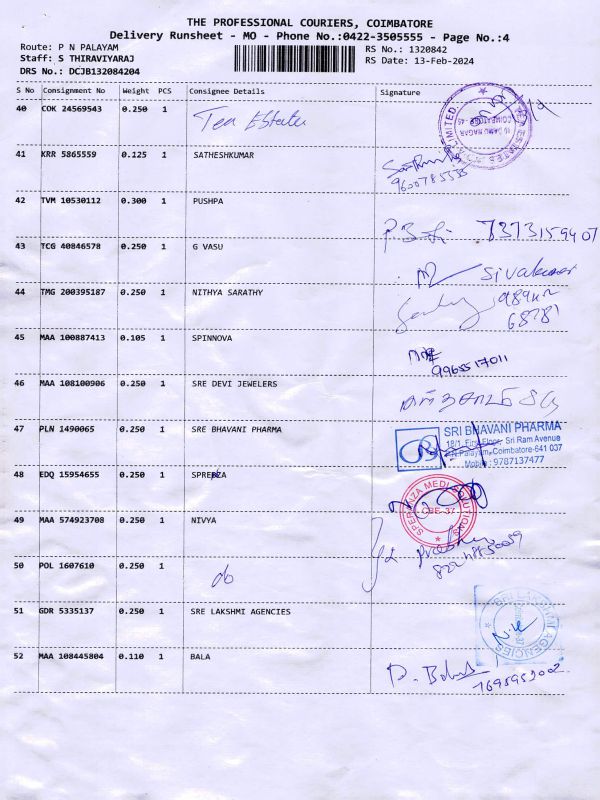 THE PROFESSIONAL COURIERS, COIMBATORE
Delivery Runsheet - MO - Phone No.:0422-3505555 - Page No.:4
Route: P N PALAYAM
RS No.: 1320842
Staff: S THIRAVIYARAJ
RS Date: 13-Feb-2024
DRS No.: DCJB132084204
S No Consignment No Weight PCS Consignee Details Signature
40 COK 24569543 0.250 1 Tea Estate
41 KRR 5865559 0.125 1 SATHESHKUMAR
9600785555
42 TVM 10530112 0.300 1 PUSHPA
7373159407
43 TCG 40846578 0.250 1 G VASU
Sivakumar
44 TMG 200395187 0.250 1 NITHYA SARATHY
45 MAA 100887413 0.105 1 SPINNOVA
9965517011
46 MAA 108100906 0.250 1 SRE DEVI JEWELERS
47 PLN 1490065 0.250 1 SRE BHAVANI PHARMA
SRI BHAVANI PHARMA
18/1, First Floor, Sri Ram Avenue
P.N.Palayam, Coimbatore-641 037
Mobile : 9787137477
48 EDQ 15954655 0.250 1
SPERANZA MEDI
CBE-37
49 MAA 574923708 0.250 1 NIVYA
50 POL 1607610 0.250 1 do
51 GDR 5335137 0.250 1 SRE LAKSHMI AGENCIES
SRI LAKSHMI AGENCIES
52 MAA 108445804 0.110 1 BALA
7695959002